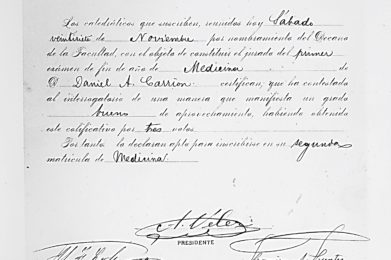 Los catedráticos que suscriben, reunidos hoy Sábado
veintisiete de Noviembre por nombramiento del Decano
de la Facultad, con el objeto de constituir el jurado del primer
exámen de fin de año de Medicina de
D. Daniel A. Carrion certifican, que ha contestado
al interrogatorio de una manera que manifiesta un grado
bueno de aprovechamiento, habiendo obtenido
este calificativo por tres votos.
Por tanto la declaran apto para inscribirse en su segunda
matrícula de Medicina.
A. Velez
PRESIDENTE